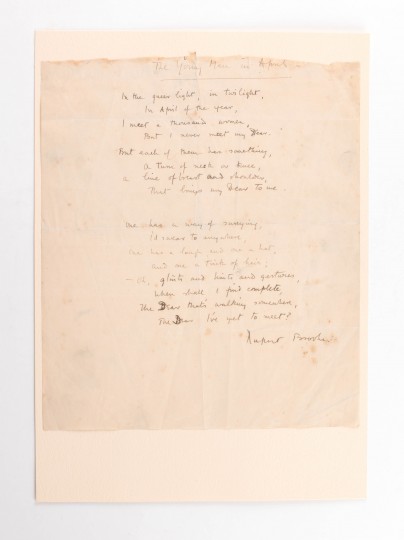 The Young Man in April
In the queer light, in twilight,
In April of the year,
I meet a thousand women,
But I never meet my Dear.
But each of them has something,
A turn of neck or knee,
a line of breast and shoulder,
That brings my Dear to me.
One has a way of swaying,
I'd swear to anywhere,
One has a laugh and one a hat,
and one a trick of hair.
— Oh, glints and hints and gestures,
When shall I find complete
The Dear that's walking somewhere,
The Dear I've yet to meet!
Rupert Brooke